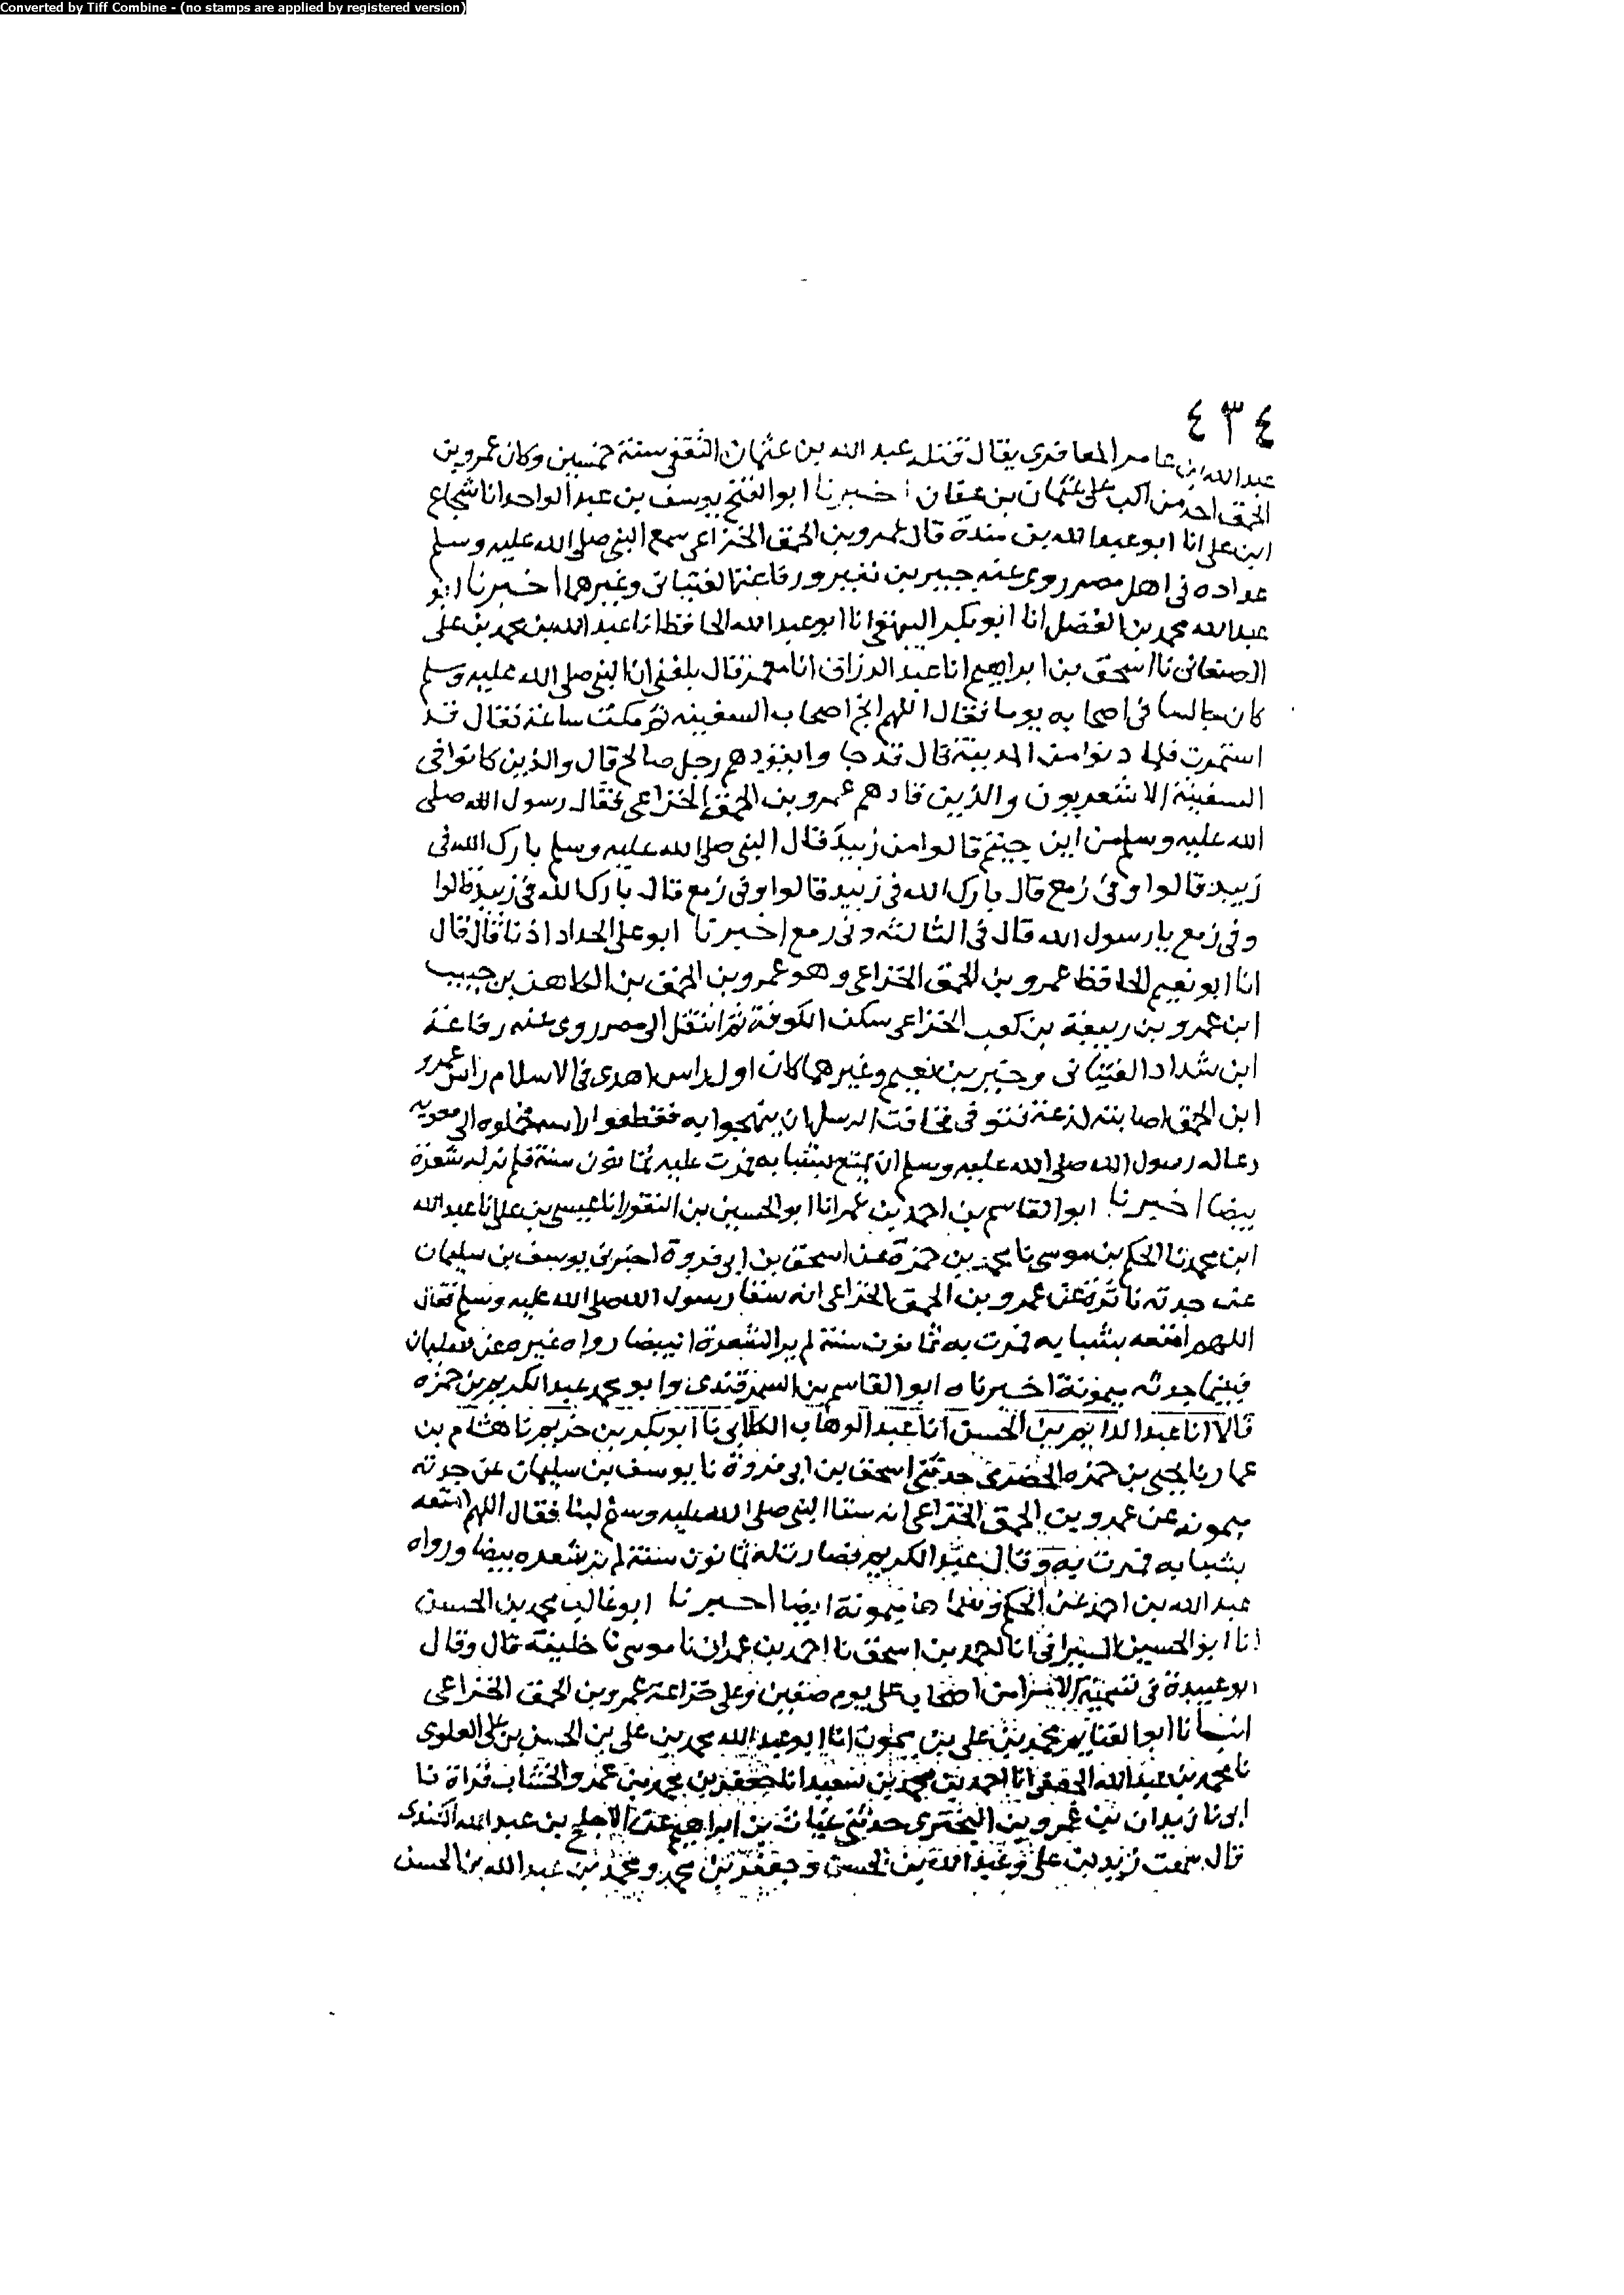 Converted by Tiff Combine - (no stamps are applied by registered version)
٤٣٤
عبد الله بن عامر المعافري يقال قتله عبد الله بن عثمان الثقفي سنة خمسين وكان عمرو بن
الحمق احد من الب على عثمان بن عفان اخبرنا ابو الفتح يوسف بن عبد الواحد انا شجاع
ابن على انا ابو عبد الله بن مندة قال عمرو بن الحمق الخزاعى سمع النبى صلى الله عليه وسلم
عداده فى اهل مصر روى عنه جبير بن نفير ورفاعة الفتيانى وغيرهما اخبرنا ابو
عبد الله محمد بن الفضل انا ابو بكر البيهقى انا ابو عبد الله الحافظ انا عبد الله بن محمد بن على
الصنعانى نا اسحق بن ابراهيم انا عبد الرزاق انا معمر قال بلغنى ان النبى صلى الله عليه وسلم
كان جالسا فى اصحابه يوما فقال اللهم انج اصحاب السفينه ثم مكث ساعة فقال قد
استمرت فلما دنوا من المدينة قال قد جاوا يقودهم رجل صالح قال والذين كانوا فى
السفينة الاشعريون والذين قادهم عمرو بن الحمق الخزاعى فقال رسول الله صلى
الله عليه وسلم من اين جيتم قالوا من زبيد قال النبى صلى الله عليه وسلم بارك الله فى
زبيد قالوا وفى زمع قال بارك الله فى زبيد قالوا وفى زمع قال بارك الله فى زبيد قالوا
وفى زمع يا رسول الله قال فى الثالثه وفى زمع اخبرنا ابو على الحداد اذنا قال قال
انا ابو نعيم الحافظ عمرو بن الحمق الخزاعى وهو عمرو بن الحمق بن الكاهن بن حبيب
ابن عمرو بن ربيعة بن كعب الخزاعى سكن الكوفة ثم انتقل الى مصر روى عنه رفاعة
ابن شداد الفتيانى وجبير بن نعيم وغيرهما كان اول راس اهدى فى الاسلام راس عمرو
ابن الحمق اصابته لدغة فتوفى فخافت الرسل ان يتهموا به فقطعوا راسه فحملوه الى معويه
دعا له رسول الله صلى الله عليه وسلم ان يمتع بشبابه فمرت عليه ثمانون سنة فلم ير له شعرة
بيضا اخبرنا ابو القاسم بن احمد بن عمر انا ابو الحسين بن النقور انا عيسى بن على انا عبد الله
ابن محمد نا الحكم بن موسى نا يحيى بن حمزة عن اسحق بن ابى فروة اخبرنى يوسف بن سليمان
عن جدته عن عمرو بن الحمق الخزاعى انه سقا رسول الله صلى الله عليه وسلم فقال
اللهم امتعه بشبابه فمرت به ثمانون سنة لم ير الشعرة البيضا رواه غيره عن سليمان
جدته ميمونة اخبرناه ابو القاسم بن السمرقندى وابو محمد عبد الكريم بن حمزه
قالا انا عبد الدايم بن الحسن انا عبد الوهاب الكلابى نا ابو بكر بن خريم نا هشام بن
عمار نا يحيى بن حمزه الحضرمى حدثنى اسحق بن ابى فروة نا يوسف بن سليمان عن جدته
ميمونه عن عمرو بن الحمق الخزاعى انه سقا النبى صلى الله عليه وسلم لبنا فقال اللهم امتعه
بشبابه فمرت به وقال عبد الكريم ثمانون سنة لم ير شعره بيضا ورواه
عبد الله بن احمد عن الحكم ميمونة ايضا اخبرنا ابو غالب محمد بن الحسن
انا ابو الحسين السيرافى انا احمد بن اسحق نا احمد بن عمران نا موسى نا خليفة قال وقال
ابو عبيدة فى تسمية الامرا من اصحاب على يوم صفين وعلى خزاعة عمرو بن الحمق الخزاعى
انبانا ابو الغنايم محمد بن على بن ميمون انا ابو عبد الله محمد بن على بن الحسن بن على العلوى
نا محمد بن عبد الله الجعفى انا احمد بن محمد بن سعيد انا جعفر بن محمد بن عمرو الخشاب قراة نا
ابى نا زيدان بن عمرو بن البخترى حدثنى غياث بن ابراهيم عن الاجلح بن عبد الله الكندى
قال سمعت زيد بن على وعبد الله بن الحسن وجعفر بن محمد ومحمد بن عبد الله بن الحسن